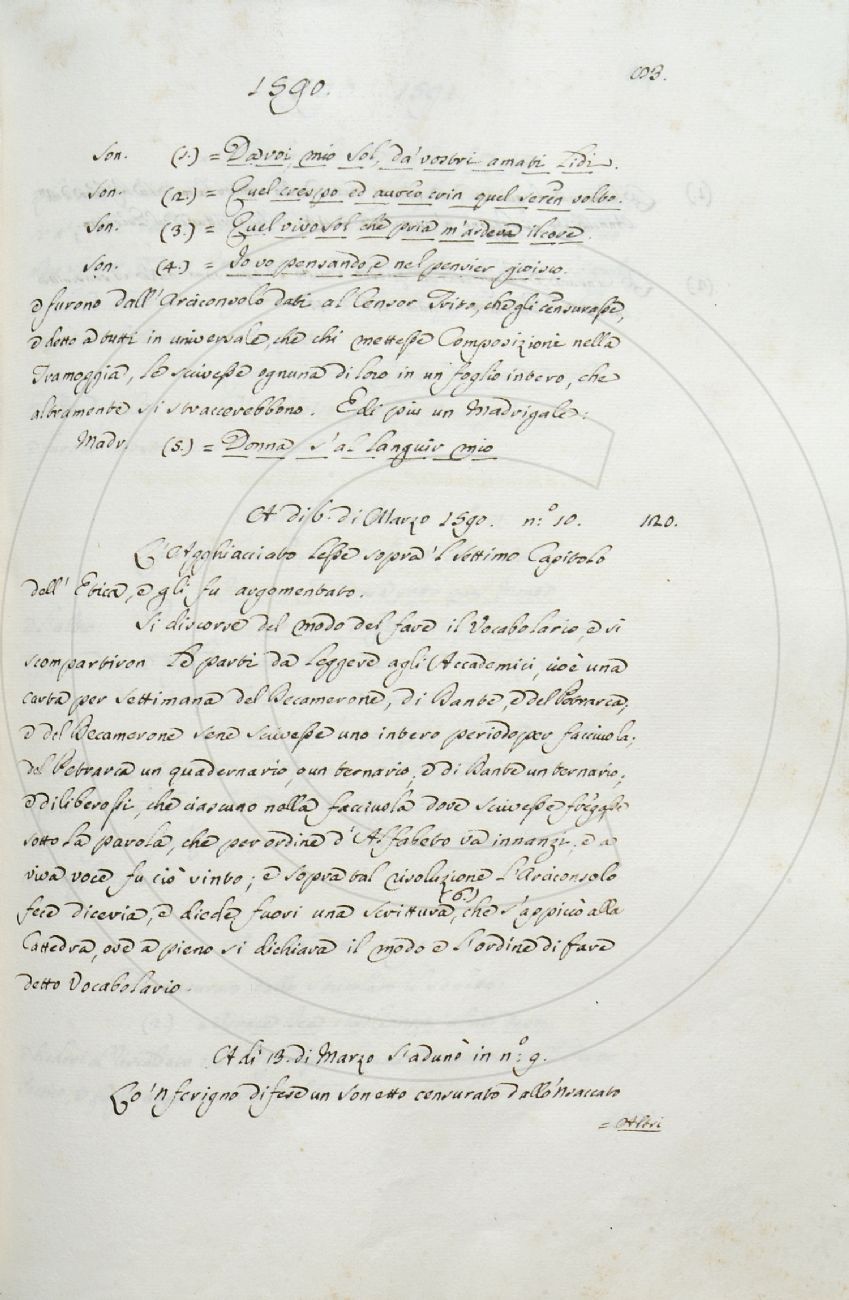 1590.
103.
Son. (1.) = Da voi, mio Sol, da' vostri amati Lidi.
Son. (2.) = Quel crespo ed aureo crin quel seren volto.
Son. (3.) = Quel vivo Sol che pria m'ardeva il core.
Son. (4.) = Io vo pensando, e nel pensier gioisco.
e furono dall'Arciconsolo dati al Censor Trito, che gli censurasse,
e detto a tutti in universale, che chi mettesse Composizione nella
Tramoggia, le scrivesse ognuna di loro in un foglio intero, che
altramente si straccerebbono. E di più un Madrigale:
Madr. (5.) = Donna s'al languir mio
A dì 6. di Marzo 1590. n.º 10. 120.
L'Agghiacciato lesse sopra 'l settimo Capitolo
dell'Etica, e gli fu argomentato.
Si discorse del modo del fare il Vocabolario, e si
scompartiron le parti da leggere agli Accademici, cioè una
carta per settimana del Decamerone, di Dante, e del Petrarca;
e del Decamerone sene scrivesse uno intero periodo per facciuola;
del Petrarca un quadernario, o un ternario; e di Dante un ternario;
e diliberossi, che ciascuno nella facciuola dove scrivesse fregasse
sotto la parola, che per ordine d'Alfabeto va innanzi, e a
viva voce fu ciò vinto; e sopra tal risoluzione l'Arciconsolo
fece diceria, e diede fuori una Scrittura (6.), che s'appiccò alla
Cattedra, ove a pieno si dichiara il modo e l'ordine di fare
detto Vocabolario.
A dì 13. di Marzo s'adunò in n.º 9.
Lo 'Nferigno difese un Sonetto censurato dallo 'Nsaccato
= Altri